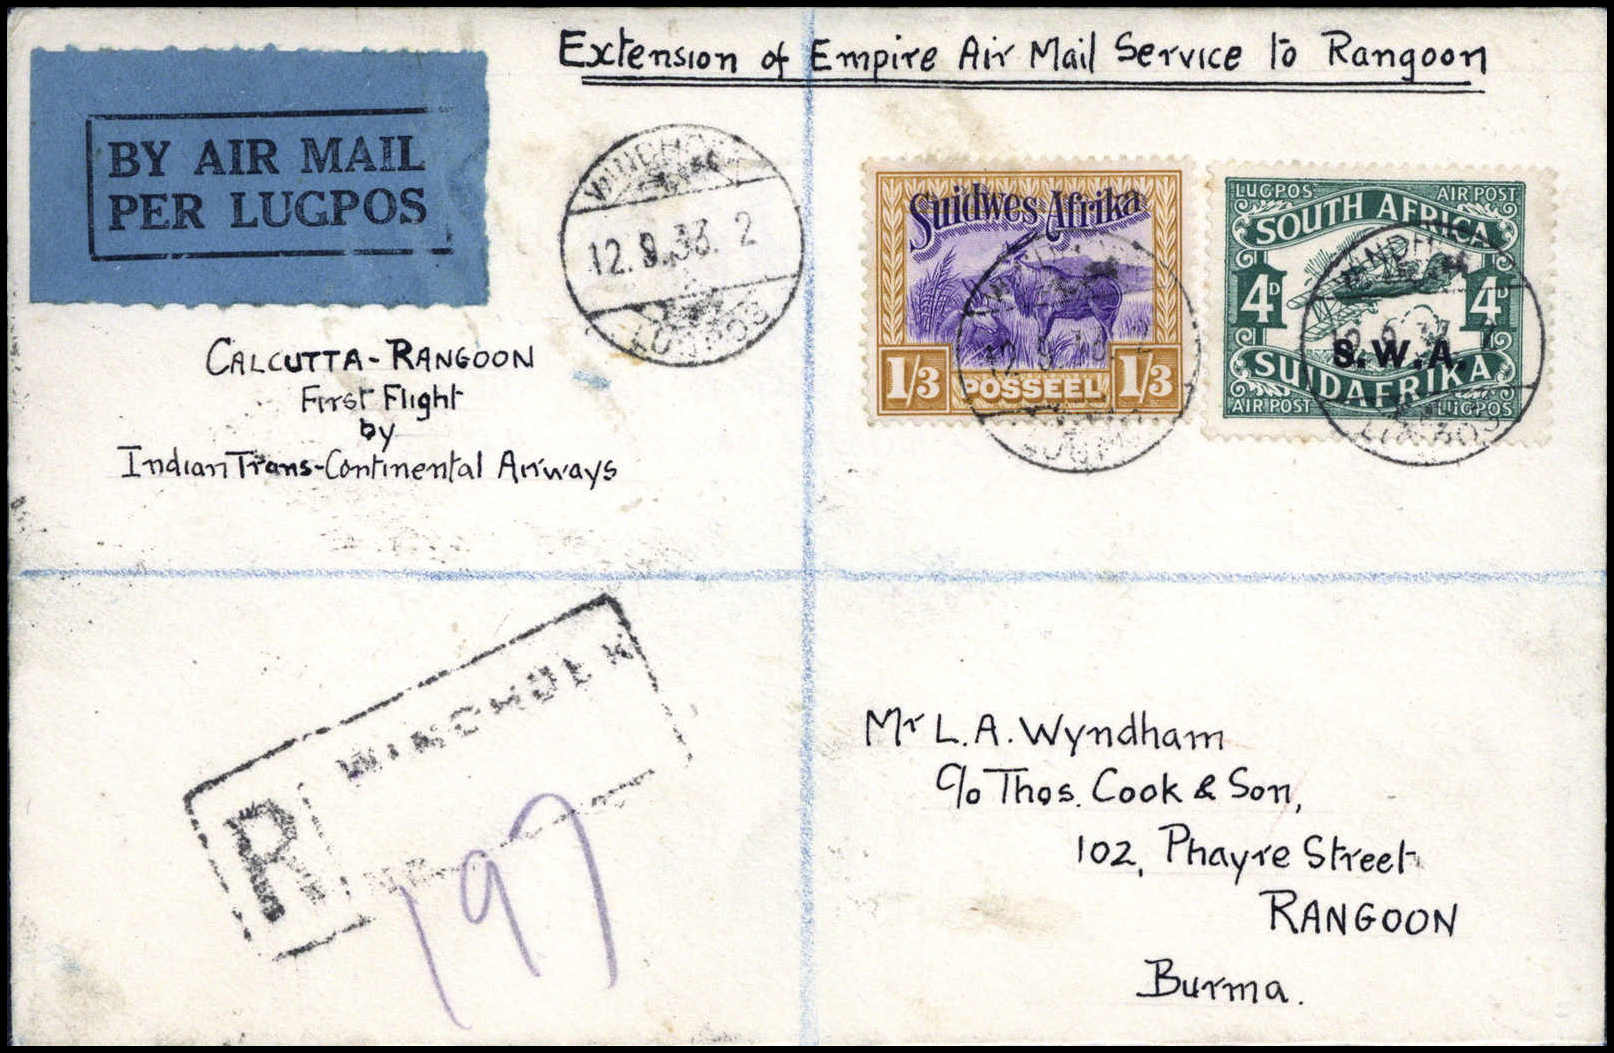 Extension of Empire Air Mail Service to Rangoon
BY AIR MAIL
PER LUGPOS
WINDHOEK
12.9.33. 2
LUGPOS
Suidwes Afrika
1/3 POSSEEL 1/3
LUGPOS AIR POST
SOUTH AFRICA
4D 4D
S.W.A.
SUIDAFRIKA
AIR POST LUGPOS
CALCUTTA-RANGOON
First Flight
by
Indian Trans-Continental Airways
R WINDHUEK
197
Mr L.A. Wyndham
c/o Thos. Cook & Son,
102, Phayre Street
RANGOON
Burma.